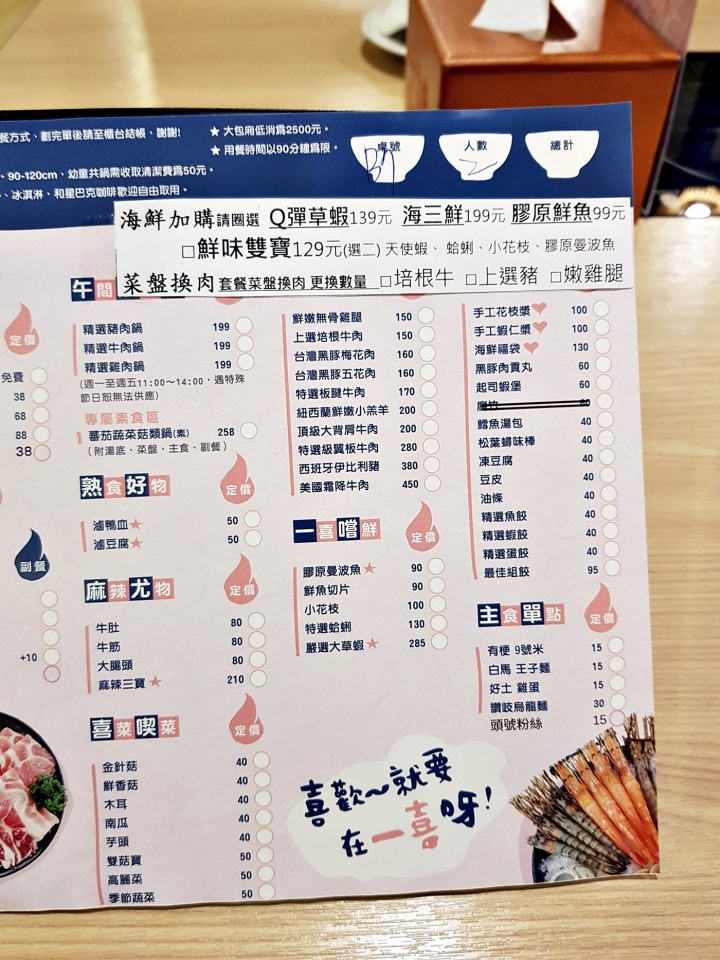 餐方式、劃完單後請至櫃台結帳，謝謝!
★ 大包廂低消為2500元。
★ 用餐時間以90分鐘為限。
、90-120cm，幼童共鍋需收取清潔費為50元。
、冰淇淋、和星巴克咖啡歡迎自由取用。
桌號
人數
總計
B7
2
海鮮加購請圈選 Q彈草蝦139元 海三鮮199元 膠原鮮魚99元
□鮮味雙寶129元(選二) 天使蝦、蛤蜊、小花枝、膠原曼波魚
菜盤換肉 套餐菜盤換肉 更換數量 □培根牛 □上選豬 □嫩雞腿
定價
免費
38
68
88
38
副餐
+10
午間
精選豬肉鍋 199
精選牛肉鍋 199
精選雞肉鍋 199
(週一至週五11:00~14:00，遇特殊
節日恕無法供應)
專屬素食區
蕃茄蔬菜菇類鍋(素) 258
(附湯底、菜盤、主食、副餐)
熟食好物 定價
滷鴨血★ 50
滷豆腐★ 50
麻辣尤物 定價
牛肚 80
牛筋 80
大腸頭 80
麻辣三寶★ 210
喜菜喫菜 定價
金針菇 40
鮮香菇 40
木耳 40
南瓜 40
芋頭 40
雙菇寶 50
高麗菜 50
季節蔬菜 50
鮮嫩無骨雞腿 150
上選培根牛肉 150
台灣黑豚梅花肉 160
台灣黑豚五花肉 160
特選板腱牛肉 170
紐西蘭鮮嫩小羔羊 200
頂級大背肩牛肉 200
特選級翼板牛肉 280
西班牙伊比利豬 380
美國霜降牛肉 450
一喜嚐鮮 定價
膠原曼波魚★ 90
鮮魚切片 90
小花枝 100
特選蛤蜊 130
嚴選大草蝦★ 285
手工花枝漿♥ 100
手工蝦仁漿♥ 100
海鮮福袋♥ 130
黑豚肉貢丸 60
起司蝦堡 60
腐竹 80
鱈魚湯包 40
松葉蟳味棒 40
凍豆腐 40
豆皮 40
油條 40
精選魚餃 40
精選蝦餃 40
精選蛋餃 40
最佳組餃 95
主食單點 定價
有梗 9號米 15
白馬 王子麵 15
好土 雞蛋 15
讚岐烏龍麵 30
頭號粉絲 15
喜歡~就要
在一喜呀!